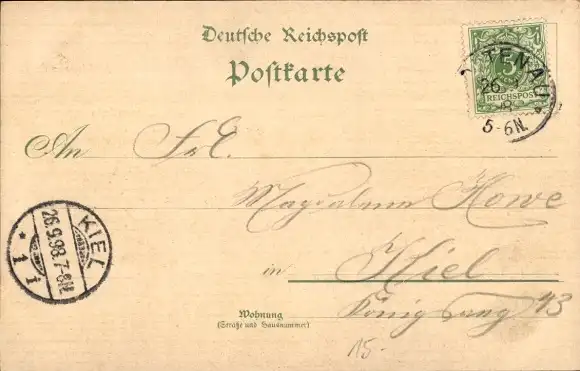 Deutsche Reichspost
Postkarte
5
REICHSPOST
TENAU
26
5-6N.
An Frl.
Magdalena Howe
in Kiel
Wohnung
(Straße und Hausnummer)
43
KIEL
26.9.98.7-8N.
* 1 i
15.-